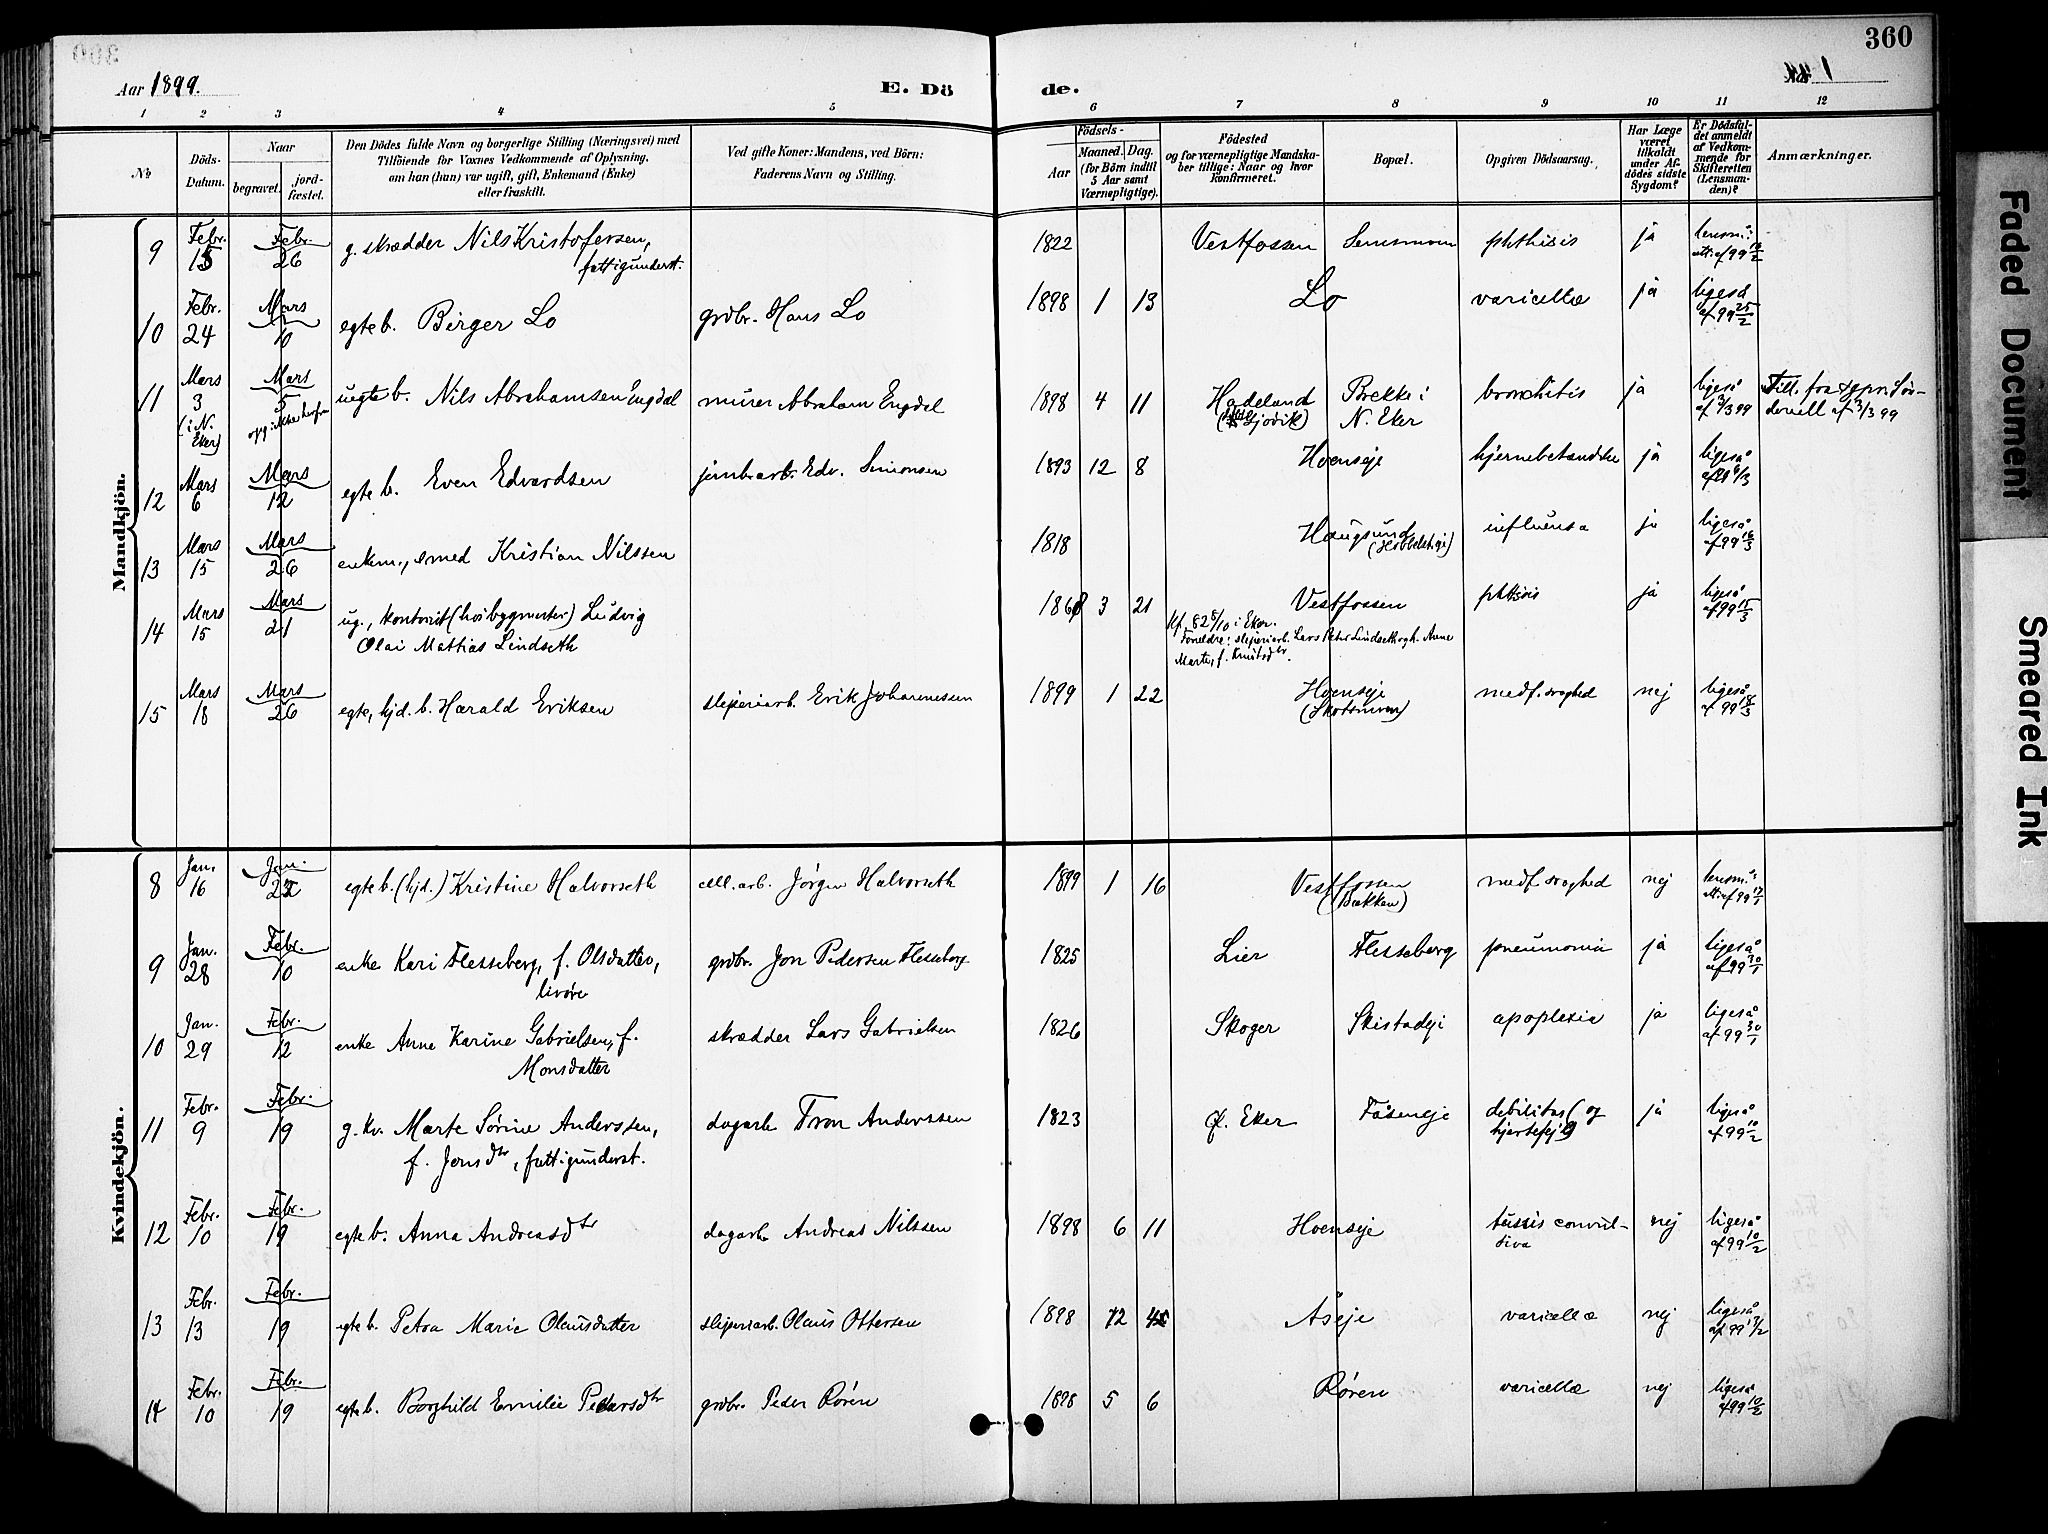 360
Aar 1899.
E. Dö de.
1
1 2 3 4 5 6 7 8 9 10 11 12
No
Döds-Datum.
Naar
begravet.
jord-fæstet.
Den Dödes fulde Navn og borgerlige Stilling (Næringsvei) med
Tilföiende for Voxnes Vedkommende af Oplysning,
om han (hun) var ugift, gift, Enkemand (Enke)
eller fraskilt.
Ved gifte Koner: Mandens, ved Börn:
Faderens Navn og Stilling.
Födsels-
Aar
Maaned. Dag.
(for Börn indtil
5 Aar samt
Værnepligtige).
Födested
og for værnepligtige Mandska-
ber tillige: Naar og hvor
konfirmeret.
Bopæl.
Opgiven Dödsaarsag.
Har Læge
været
tilkaldt
under Af-
dödes sidste
Sygdom?
Er Dödsfal-
det anmeldt
af Vedkom-
mende for
Skifteretten
(Lensman-
den)?
Anmærkninger.
Mandkjön.
9 Febr. 15 Febr. 26 g. skrædder Nils Kristofersen, 1822 Vestfossen phthisis ja lensm.
fattigunderst.
10 Febr. 24 Mars 10 egte b. Birger Lo grdbr. Hans Lo 1898 1 13 Lo varicellæ ja ligeså af 99 25/2
11 Mars 3 (i N. Eker) Mars 5 uegte b. Nils Abrahamsen Engdal murer Abraham Engdal 1898 4 11 Hadeland (Gjøvik) Brekke i N. Eker bronchitis ja ligeså af 3/3 99 Till. fra sgpr.
af 3/3 99
12 Mars 6 Mars 12 egte b. Even Edvardsen jernbarb. Edv. Simonsen 1893 12 8 Hoenseje hjernebetændelse ja ligeså
13 Mars 15 Mars 26 enkem., smed Kristian Nilssen 1818 Haugsund influensa ja ligeså af 99 16/3
14 Mars 15 Mars 21 ug., kontorist Ludvig 3 21 Vestfossen phthisis ja ligeså af 99 15/3
Olai Mathias Lindseth
Kf. 82 8/10 i Eker.
Foreldre: sliperiarb. Lars Peter Lindseth og h. Anne
Marte, f. Knutsdtr.
15 Mars 18 Mars 26 egte, hjd. b. Harald Eriksen sliperiarb. Erik Johannessen 1899 1 22 Hoenseje (Skotsmoen) medf. svaghed nej ligeså af 99 18/3
Kvindekjön.
8 Jan. 16 Jan. 22 egte b. (hjd.) Kristine Halvorseth cell. arb. Jørgen Halvorseth 1899 1 16 Vestfossen (Bakken) medf. svaghed nej lensm. 99 17/1
9 Jan. 28 Febr. 10 enke Kari Flesseberg, f. Olsdatter, grdbr. Jon Pedersen Flesseberg 1825 Lier Flesseberg pneumonia ja ligeså af 99 30/1
livøre
10 Jan. 29 Febr. 12 enke Anne Karine Gabrielsen, f. skrædder Lars Gabrielsen 1826 Skoger Skistadeje apoplexia ja ligeså af 99 30/1
Monsdatter
11 Febr. 9 Febr. 19 g. kv. Marte Sørine Anderssen, dagarb. Tron Anderssen 1823 Ø. Eker Fåseneje debilitas (og hjertefejl) ja ligeså af 99 10/2
f. Jensdtr, fattigunderst.
12 Febr. 10 Febr. 19 egte b. Anna Andreasdtr dagarb. Andreas Nilssen 1898 6 11 Hoenseje tussis convul-siva nej ligeså af 99 10/2
13 Febr. 13 Febr. 19 egte b. Petra Marie Olausdatter sliperiarb. Olaus Ottersen 1898 12 Åseje varicellæ nej ligeså af 99 13/2
14 Febr. 10 Febr. 19 egte b. Borghild Emilie Pedersdtr grdbr. Peder Røren 1898 5 6 Røren varicellæ nej ligeså af 99 10/2
Faded Document
Smeared Ink